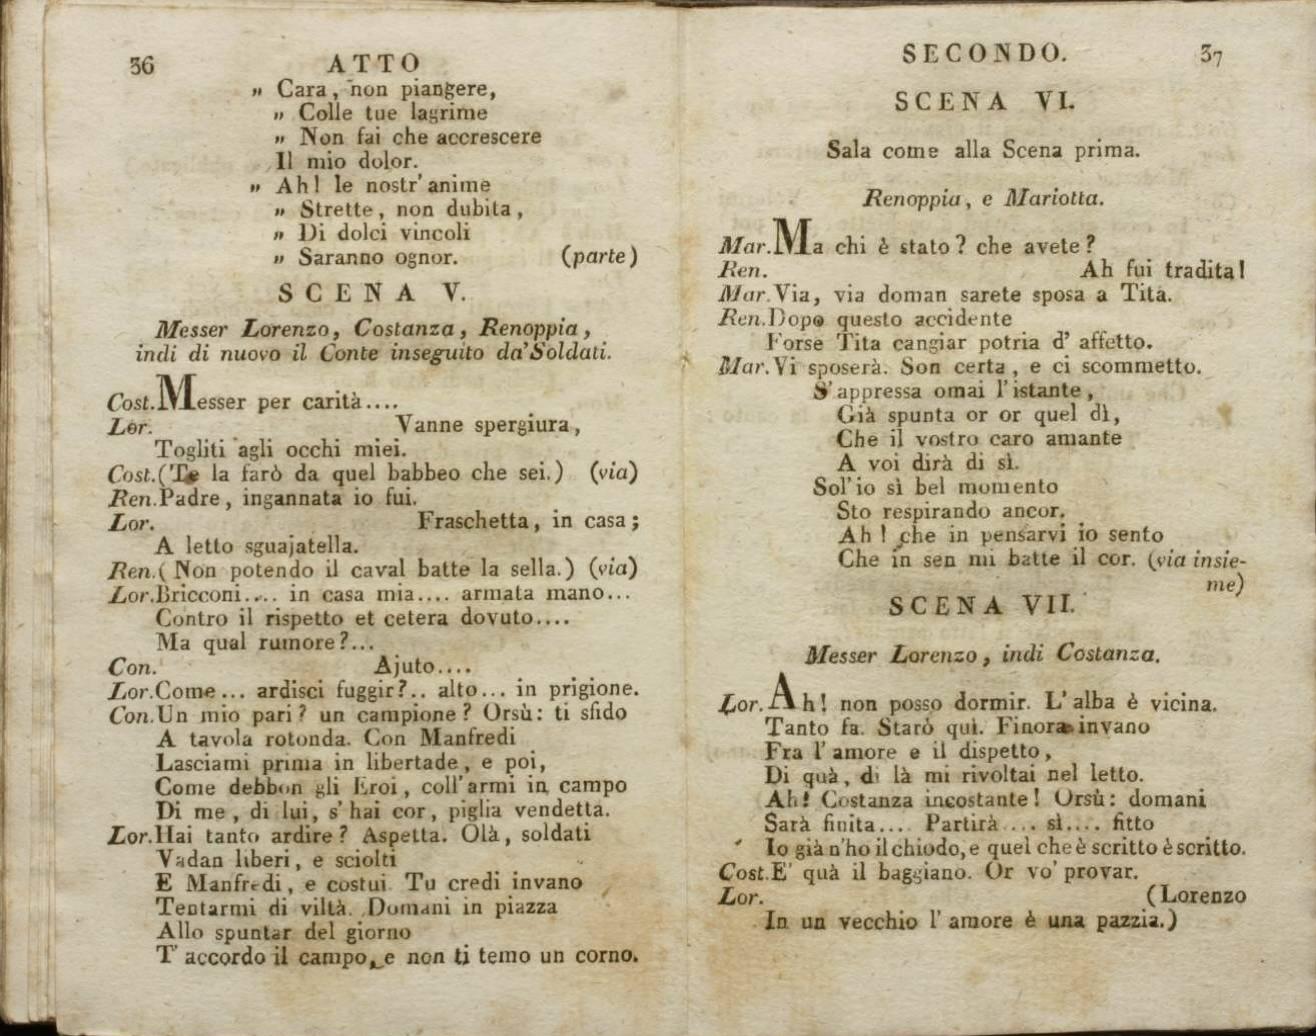 36 ATTO
„ Cara, non piangere,
„ Colle tue lagrime
„ Non fai che accrescere
Il mio dolor.
„ Ah! le nostr' anime
„ Strette, non dubita,
„ Di dolci vincoli
„ Saranno ognor. (parte)
SCENA V.
Messer Lorenzo, Costanza, Renoppia,
indi di nuovo il Conte inseguito da' Soldati.
Cost. Messer per carità....
Lor. Vanne spergiura,
Togliti agli occhi miei.
Cost. (Te la farò da quel babbeo che sei.) (via)
Ren. Padre, ingannata io fui.
Lor. Fraschetta, in casa;
A letto sguajatella.
Ren. (Non potendo il caval batte la sella.) (via)
Lor. Bricconi.... in casa mia.... armata mano...
Contro il rispetto et cetera dovuto....
Ma qual rumore?...
Con. Ajuto....
Lor. Come... ardisci fuggir?.. alto... in prigione.
Con. Un mio pari? un campione? Orsù: ti sfido
A tavola rotonda. Con Manfredi
Lasciami prima in libertade, e poi,
Come debbon gli Eroi, coll' armi in campo
Di me, di lui, s' hai cor, piglia vendetta.
Lor. Hai tanto ardire? Aspetta. Olà, soldati
Vadan liberi, e sciolti
E Manfredi, e costui. Tu credi invano
Tentarmi di viltà. Domani in piazza
Allo spuntar del giorno
T' accordo il campo, e non ti temo un corno.
SECONDO. 37
SCENA VI.
Sala come alla Scena prima.
Renoppia, e Mariotta.
Mar. Ma chi è stato? che avete?
Ren. Ah fui tradita!
Mar. Via, via doman sarete sposa a Tita.
Ren. Dopo questo accidente
Forse Tita cangiar potria d' affetto.
Mar. Vi sposerà. Son certa, e ci scommetto.
S' appressa omai l' istante,
Già spunta or or quel dì,
Che il vostro caro amante
A voi dirà di sì.
Sol' io sì bel momento
Sto respirando ancor.
Ah! che in pensarvi io sento
Che in sen mi batte il cor. (via insie-
me)
SCENA VII.
Messer Lorenzo, indi Costanza.
Lor. Ah! non posso dormir. L' alba è vicina.
Tanto fa. Starò quì. Finora invano
Fra l' amore e il dispetto,
Di quà, di là mi rivoltai nel letto.
Ah! Costanza incostante! Orsù: domani
Sarà finita.... Partirà.... sì.... fitto
Io già n' ho il chiodo, e quel che è scritto è scritto.
Cost. E' quà il baggiano. Or vo' provar.
Lor. (Lorenzo
In un vecchio l' amore è una pazzia.)